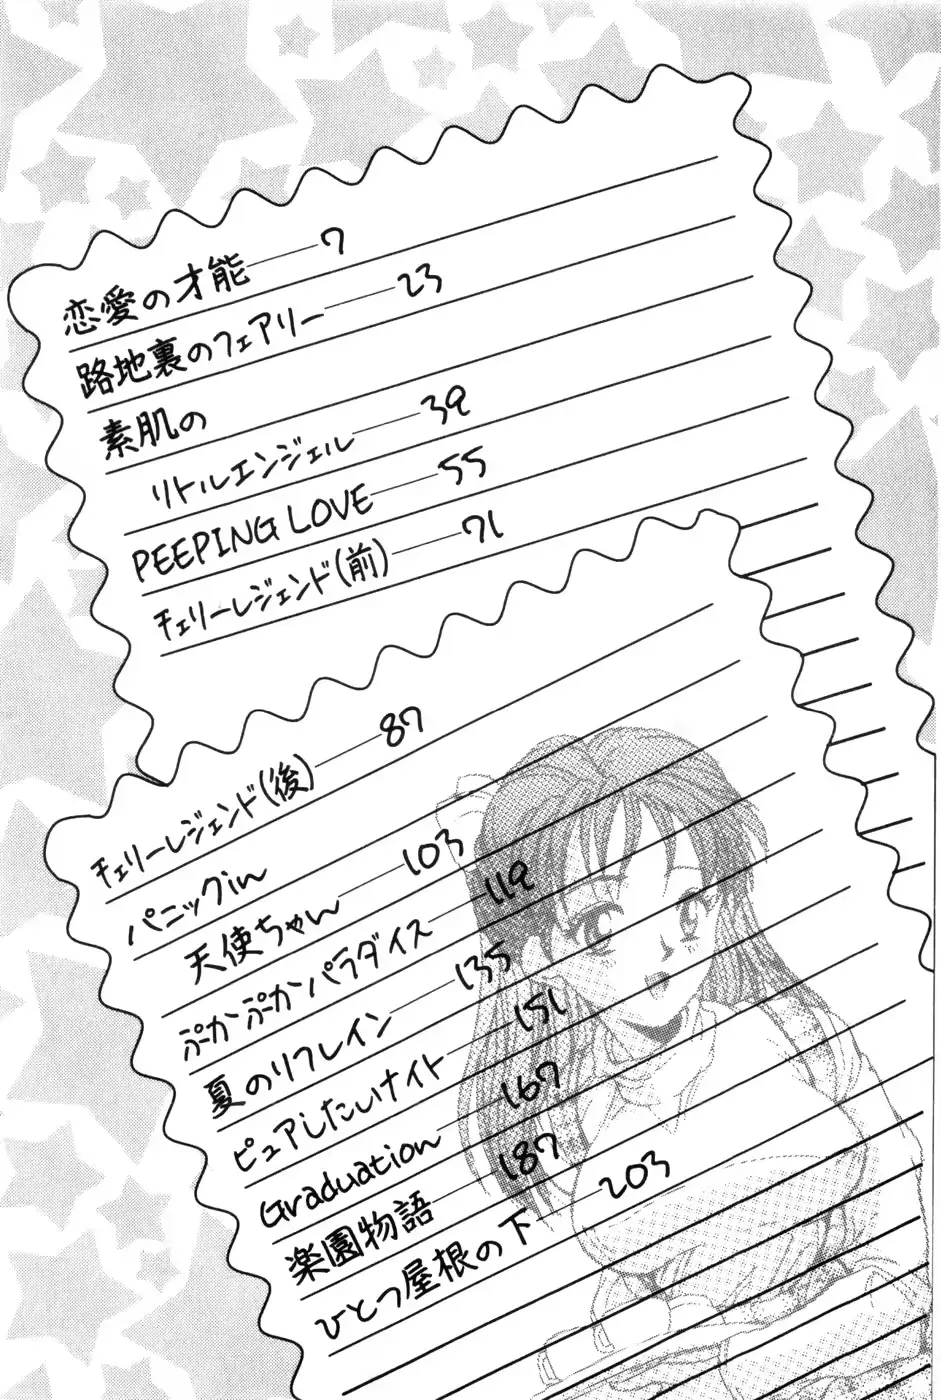 恋愛の才能――7
路地裏のフェアリー――23
素肌の
リトルエンジェル――39
PEEPING LOVE――55
チェリーレジェンド(前)――71
チェリーレジェンド(後)――87
パニックin
天使ちゃん――103
ぷかぷかパラダイス――119
夏のリフレイン――135
ピュアしたいナイト――151
Graduation――167
楽園物語――187
ひとつ屋根の下――203